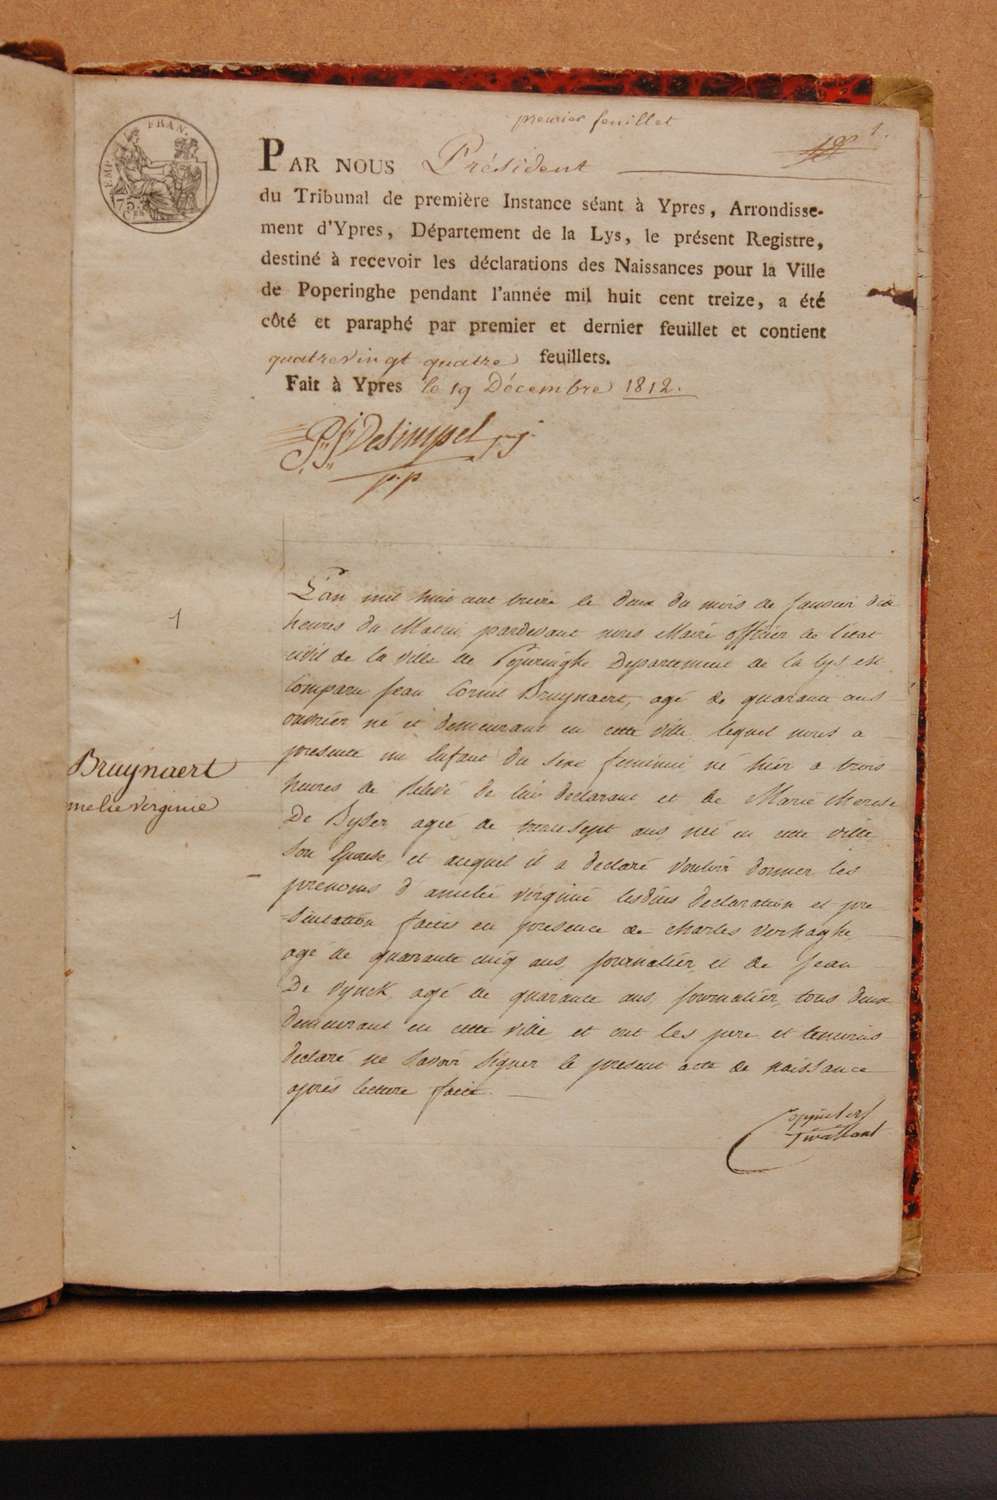 premier feuillet
1.
EMP. FRAN.
75
PAR NOUS Président
du Tribunal de première Instance séant à Ypres, Arrondisse-
ment d'Ypres, Département de la Lys, le présent Registre,
destiné à recevoir les déclarations des Naissances pour la Ville
de Poperinghe pendant l'année mil huit cent treize, a été
côté et paraphé par premier et dernier feuillet et contient
quatrevingt quatre feuillets.
Fait à Ypres le 19 Décembre 1812.
Desimpel
p.p
1
Bruynaert
melie Virginie
L'an mil huit cent treize le deux du mois de Janvier dix
heures du Matin, pardevant nous Maire officier de l'etat
civil de la ville de Poperinghe Departement de la Lys est
Comparu Jean Cornil Bruynaert, agé de quarante ans
ouvrier né et demeurant en cette ville, lequel nous a
presenté un Enfant du sexe feminin né hier a trois
heures de relevé de lui declarant et de Marie therese
De Byser agée de trente sept ans, née en cette ville,
son Epouse, et auquel il a declaré vouloir donner les
prenoms d'amelie virginie lesdites declaration et pre
sentation faites en presence de Charles Verhaghe
agé de quarante cinq ans, journalier, et de Jean
De Vynck, agé de quarante ans, journalier, tous deux
demeurant en cette ville et ont les pere et temoins
declaré ne savoir signer le present acte de naissance
après lecture faite.